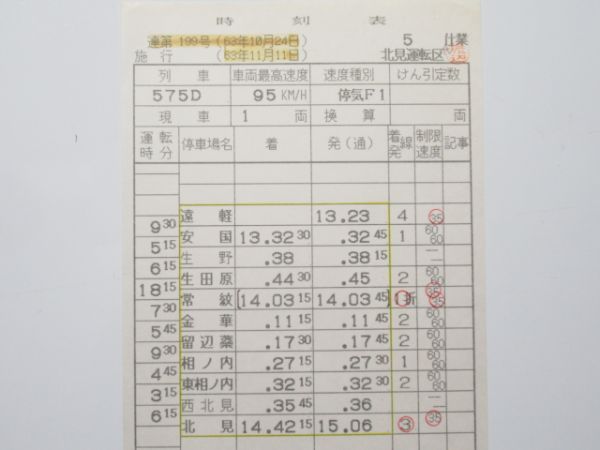 時刻表
達第199号(63年10月24日) 5 仕業
施行(63年11月11日) 北見運転区
列車 車両最高速度 速度種別 けん引定数
575D 95 KM/H 停気F1
現車 1 両 換算 両
運転時分 停車場名 着 発(通) 着発線 制限速度 記事
遠軽 13.23 4 35
9 30
安国 13.32 30 .32 45 1 60 60
5 15
生野 .38 .38 15 — —
6 15
生田原 .44 30 .45 2 60 60
18 15
常紋 [14.03 15 14.03 45] 1折 35 35
7 30
金華 .11 15 .11 45 2 60 60
5 45
留辺蘂 .17 30 .17 45 2 60 60
9 30
相ノ内 .27 15 .27 30 1 60 60
4 45
東相ノ内 .32 15 .32 30 2 60 60
3 15
西北見 .35 45 .36 — —
6 15
北見 14.42 15 15.06 3 35